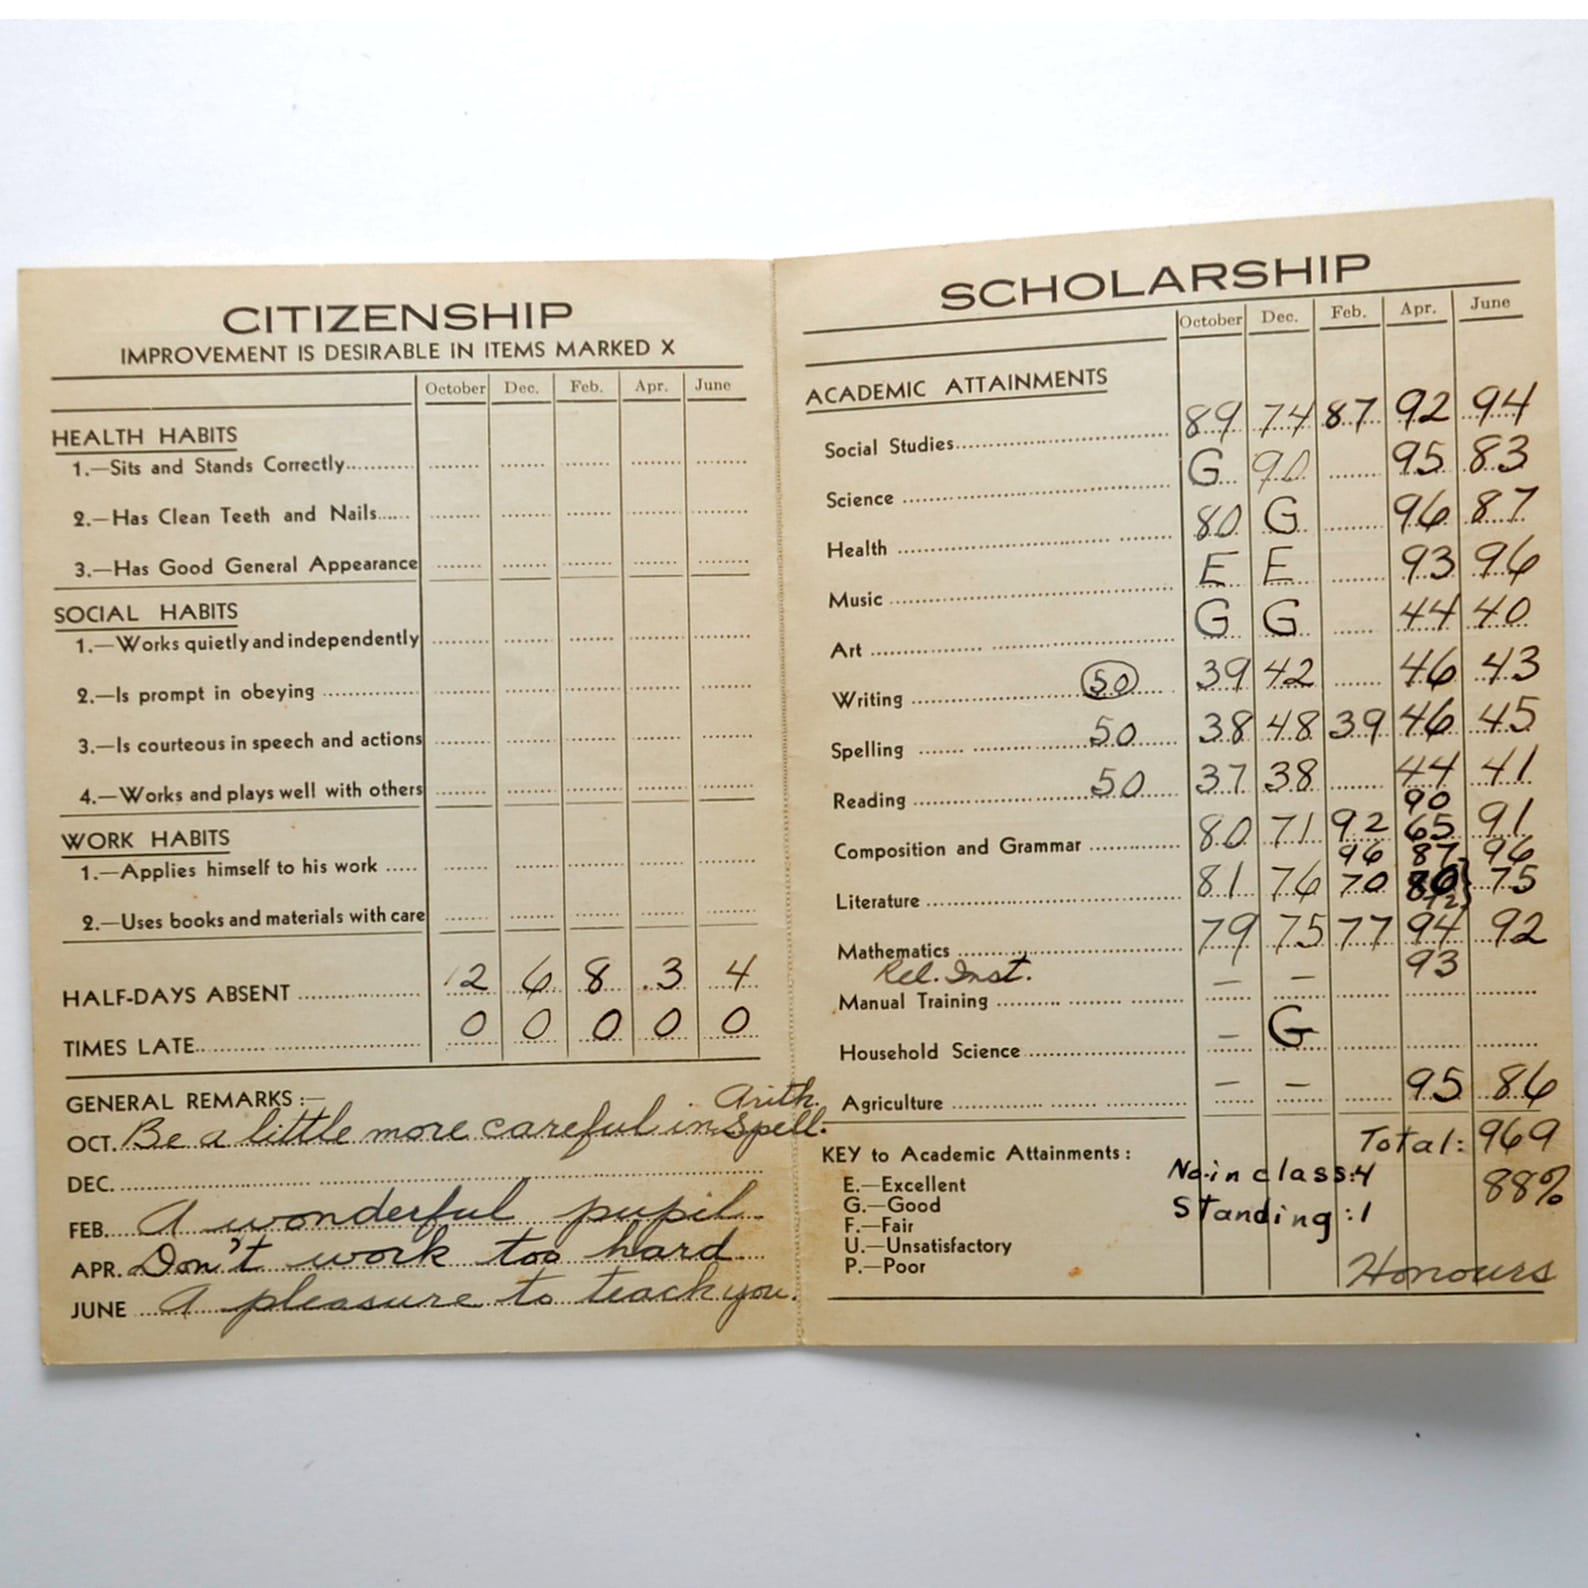 CITIZENSHIP
IMPROVEMENT IS DESIRABLE IN ITEMS MARKED X
October Dec. Feb. Apr. June
HEALTH HABITS
1.—Sits and Stands Correctly
2.—Has Clean Teeth and Nails
3.—Has Good General Appearance
SOCIAL HABITS
1.—Works quietly and independently
2.—Is prompt in obeying
3.—Is courteous in speech and actions
4.—Works and plays well with others
WORK HABITS
1.—Applies himself to his work
2.—Uses books and materials with care
HALF-DAYS ABSENT 12 6 8 3 4
TIMES LATE 0 0 0 0 0
GENERAL REMARKS:—
Arith.
OCT. Be a little more careful in Spell.
DEC.
FEB. A wonderful pupil.
APR. Don't work too hard
JUNE A pleasure to teach you.
SCHOLARSHIP
October Dec. Feb. Apr. June
ACADEMIC ATTAINMENTS
Social Studies 89 74 87 92 94
Science G 90 95 83
Health 80 G 96 87
Music E E 93 96
Art G G 44 40
Writing 50 39 42 46 43
Spelling 50 38 48 39 46 45
Reading 50 37 38 44 41
90
Composition and Grammar 80 71 92 65 91
96 87 96
Literature 81 76 70 75
72
Mathematics 79 75 77 94 92
Rel. Inst. 93
Manual Training — —
Household Science — G
Agriculture — — 95 86
Total: 969
KEY to Academic Attainments:
No. in class: 4 88%
E.—Excellent
G.—Good
Standing: 1
F.—Fair
U.—Unsatisfactory
P.—Poor
Honours